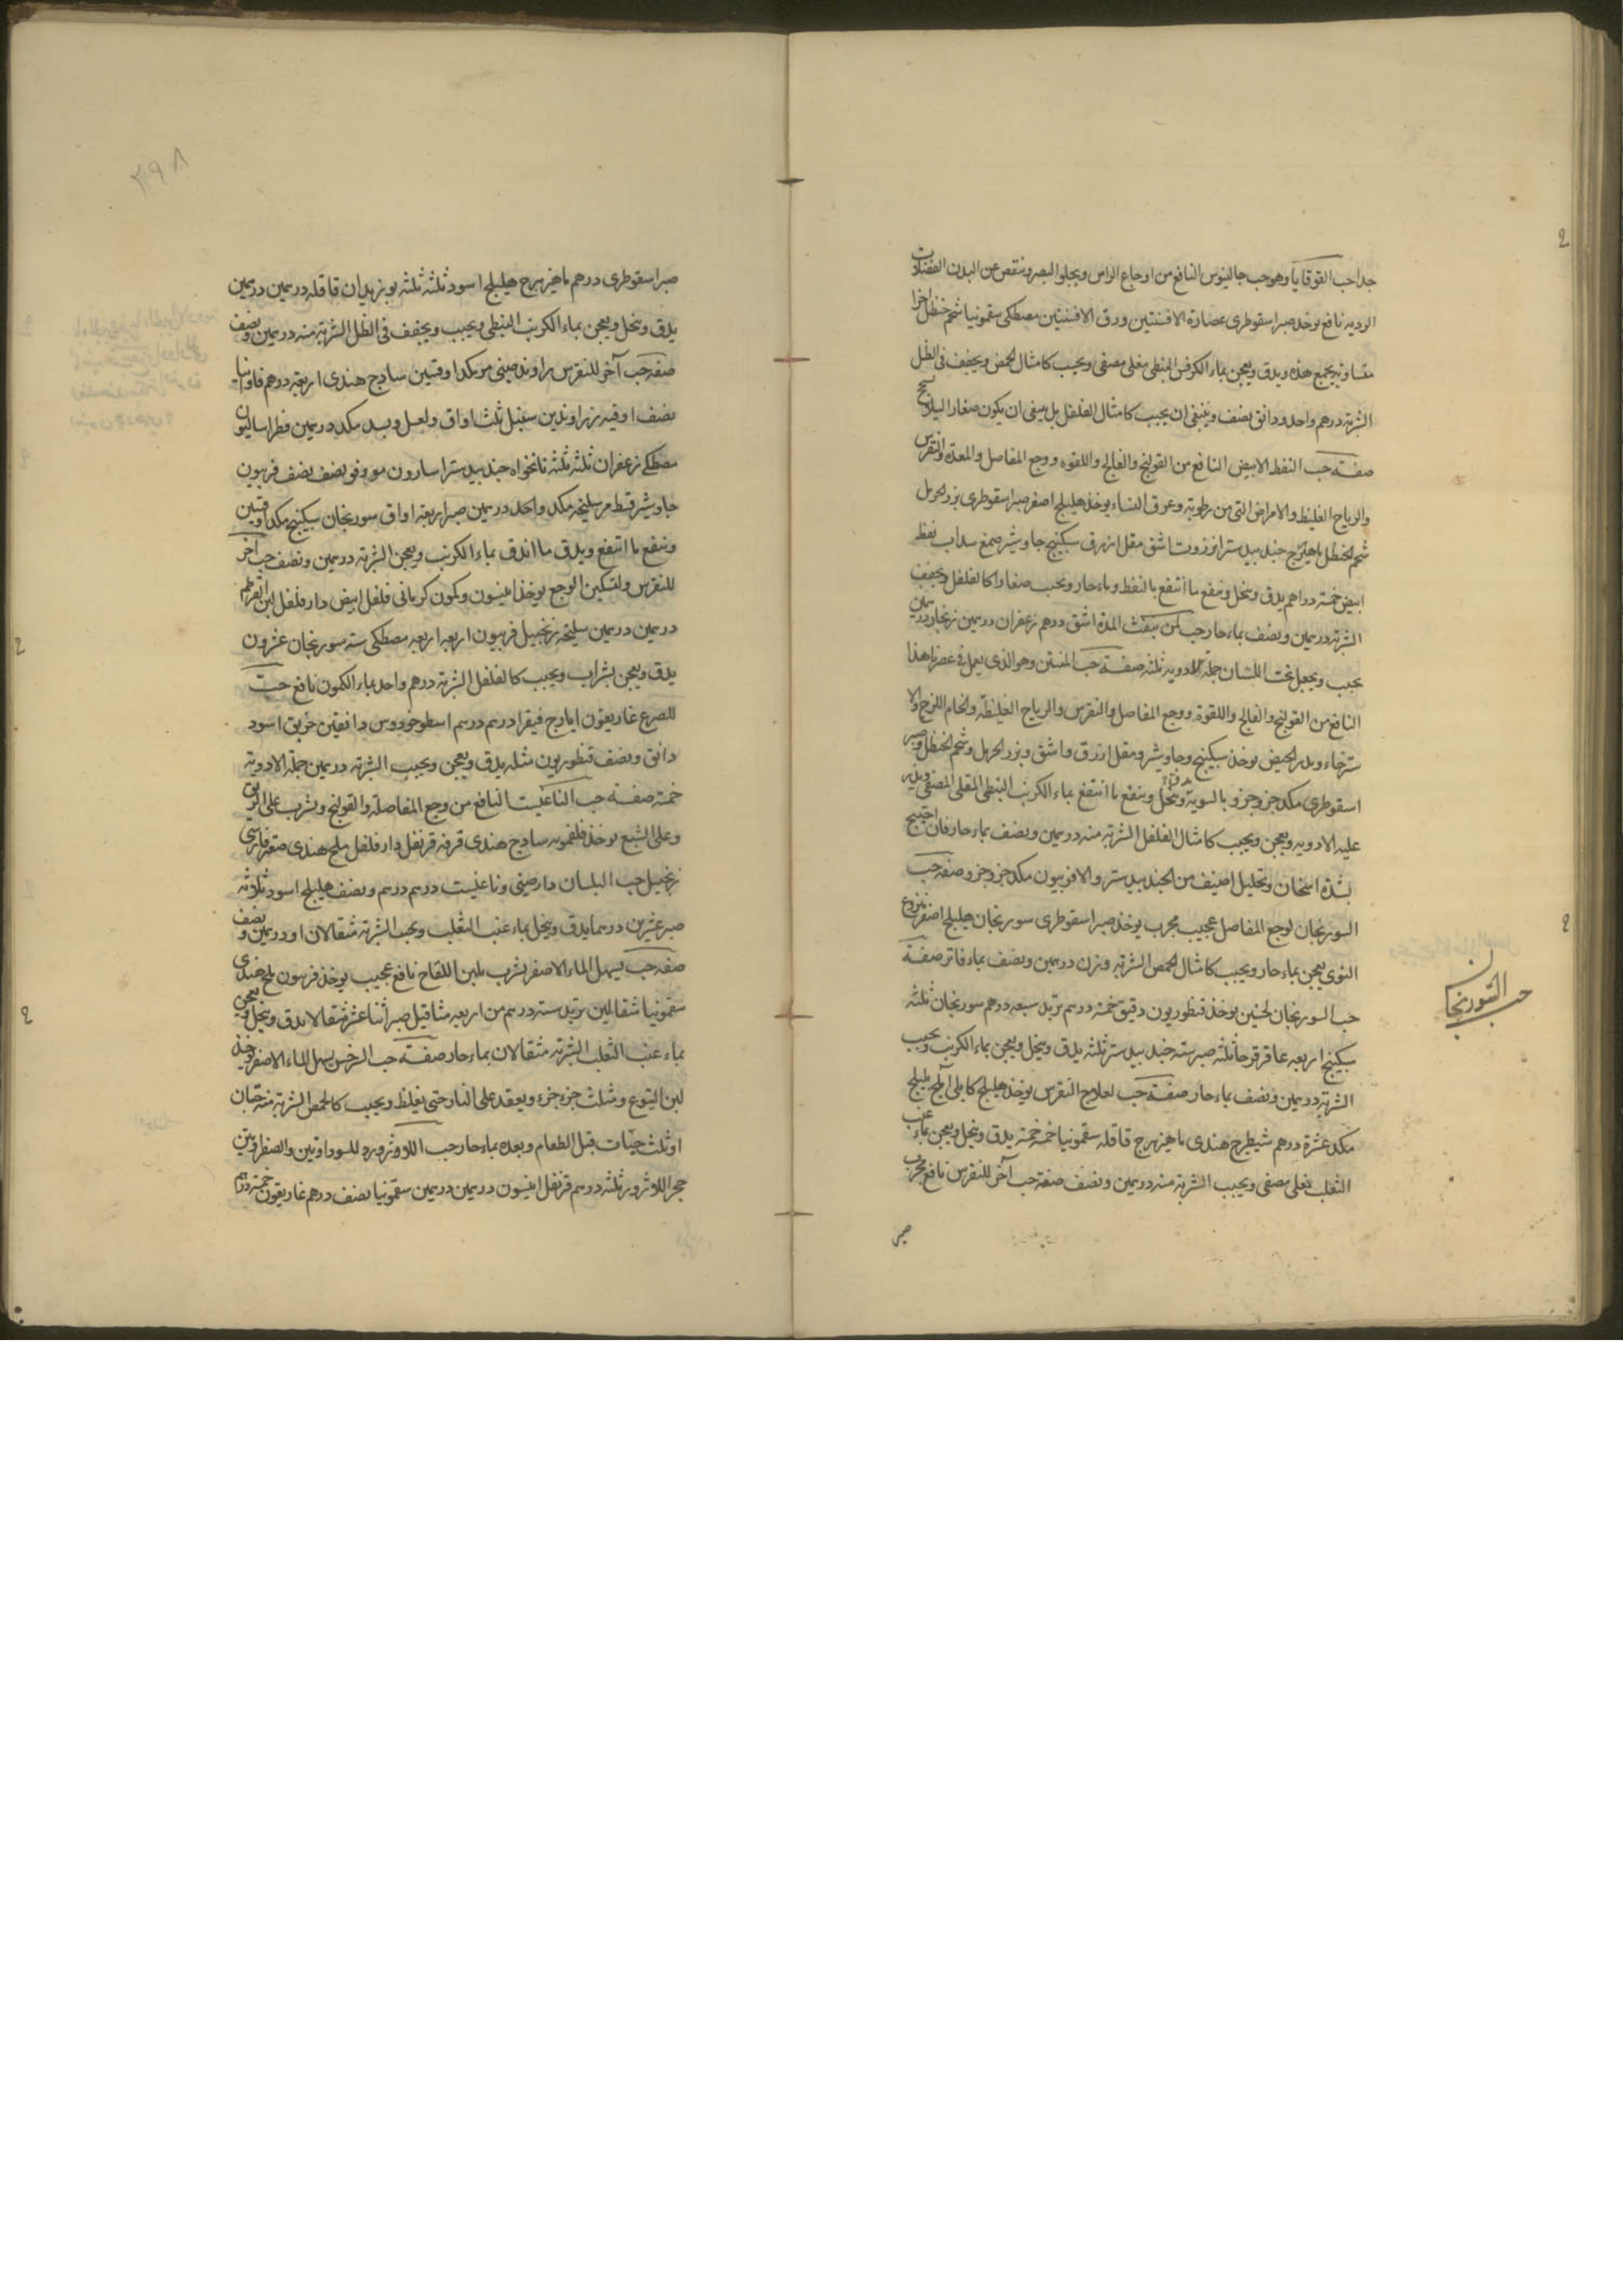 جدا حب القوقايا وهو حب جالينوس النافع من اوجاع الراس ويجلو البصر وينقص عن البدن الفضلات
الرديه نافع يوخذ صبر اسقوطرى عصارة الافسنتين ورق الافسنتين مصطكى سقمونيا شحم حنظل اجزا
متساويه يجمع هذه ويدق ويعجن بماء الكرفس المنطى مغلى مصفى ويحبب كامثال الحمص ويجفف فى الظل
الشربة درهم واحد ودانق ونصف وينبغى ان يحبب كامثال الفلفل بل ينبغى ان يكون صغار اليلا
صفة حب النفط الابيض النافع من القولنج والفالج واللقوه ووجع المفاصل والمعدة والنقرس
والرياح الغليظ والامراض التى من رطوبة وعرق النساء يوخذ هليلج اصفر صبر اسقوطرى بزر الحرمل
شحم الحنظل ماهيزهرج جندبيدستر انزروت اشق مقل ازرق سكبينج جاوشير صمغ سداب نفط
ابيض خمسة دراهم يدق وينخل وينقع ما انتقع بالنفط وماء حار ويحبب صغارا كالفلفل ويجفف
الشربة درهمين ونصف بماء حار حب لمن ينفث المدة اشق درهم زعفران درهمين زنجار درهمان
يحبب ويجعل تحت اللسان جملة الادويه ثلثه صفة حب المنتن وهو الذى يعمل فى عصرنا هذا
النافع من القولنج والفالج واللقوة ووجع المفاصل والنقرس والرياح الغليظة والخام اللزج والا
سترخاء ويدر الحيض يوخذ سكبينج وجاوشير ومقل ازرق واشق وبزر الحرمل وشحم الحنظل وصبر
اسقوطرى مكد جزو جزو بالسوية وينخل وينقع ما انتقع بماء الكرنب النبطى المغلى المصفى ويذر
عليه الادويه ويعجن ويحبب كامثال الفلفل الشربة منه درهمين ونصف بماء حار فان احتيج
بشدة اسخان وتحليل اضيف من الجندبيدستر والافربيون مكد جزو جزو صفة حب
السورنجان لوجع المفاصل عجيب مجرب يوخذ صبر اسقوطرى سورنجان هليلج اصفر منزوع
النوى يعجن بماء حار ويحبب كامثال الحمص الشربة وزن درهمين ونصف بماء فاتر صفة
حب السورنجان لحنين يوخذ قنطوريون دقيق خمسة درهم تربد سبعه درهم سورنجان ثلثه
سكبينج اربعه عاقرقرحا ثلثه صبر سته جندبيدستر ثلثه يدق وينخل ويعجن بماء الكرنب ويحبب
الشربة درهمين ونصف بماء حار صفة حب لعلاج النقرس يوخذ هليلج كابلى آملج بليلج
مكد عشرة درهم شيطرج هندى ماهيزهرج قاقله سقمونيا خمسة خمسة يدق وينخل ويعجن بماء عنب
الثعلب مغلى مصفى ويحبب الشربة منه درهمين ونصف صفة حب آخر للنقرس نافع مجرب
صبر
حب السورنجان
٣٩٨
صبر اسقوطرى درهم ماهيزهرج هليلج اسود ثلثة ثلثه بوزيدان قاقله درهمين درهمين
يدق وينخل ويعجن بماء الكرنب النبطى ويحبب ويجفف فى الظل الشربة منه درهمين ونصف
صفة حب آخر للنقرس راوند صينى مو مكد اوقيتين سادج هندى اربعة درهم فاوانيا
نصف اوقيه زراوندين سنبل ثلث اواق ولعل وبسد مكد درهمين فطراساليون
مصطكى زعفران ثلثه ثلثه نانخواه جندبيدستر اسارون مو وفو نصف نصف فربيون
جاوشير قسط مر سليخه مكد واحد درهمين صبر اربعة اواق سورنجان سكبينج مكد اوقيتين
وينقع ما انتقع ويدق ما اندق بماء الكرنب ويعجن الشربة درهمين ونصف حب آخر
للنقرس ولتسكين الوجع يوخذ انيسون وكمون كرمانى فلفل ابيض دارفلفل لبن القرطم
درهمين درهمين سليخه زنجبيل فربيون اربعه اربعه مصطكى سته سورنجان عشرون
يدق ويعجن بشراب ويحبب كالفلفل الشربة درهم واحد بماء الكمون نافع حب
للصرع غاريقون ايارج فيقرا درهم درهم اسطوخودوس دانقين خربق اسود
دانق ونصف قنطوريون مثله يدق ويعجن ويحبب الشربة درهمين جملة الادوية
خمسة صفة حب الناغيست النافع من وجع المفاصله والقولنج ويشرب على الريق
وعلى الشبع يوخذ فلفمويه سادج هندى قرفه قرنفل دارفلفل ملح هندى صعتر فارسى
زنجبيل حب البلسان دارصينى وناغيست درهم درهم ونصف هليلج اسود ثلاثه
صبر عشرين درهما يدق وينخل بماء عنب الثعلب ويحبب الشربة مثقالان او درهمين ونصف
صفة حب يسهل الماء الاصفر يشرب بلبن اللقاح نافع عجيب يوخذ فربيون ملح هندى
سقمونيا مثقالين تربد ستة درهم من اربعه مثاقيل صبر اثنا عشر مثقالا يدق وينخل ويعجن
بماء عنب الثعلب الشربة مثقالان بماء حار صفة حب الرخس يسهل الماء الاصفر يوخذ
لبن اليتوع ومثلث جزء جزء ويعقد على النار حتى يغلظ ويحبب كالحمص الشربة منه حبتان
او ثلث حبات قبل الطعام وبعده بماء حار حب اللازورد للسوداويين والصفراويين
حجر اللازورد ثلثه درهم قرنفل انيسون درهمين درهمين سقمونيا نصف درهم غاريقون خمسة درهم